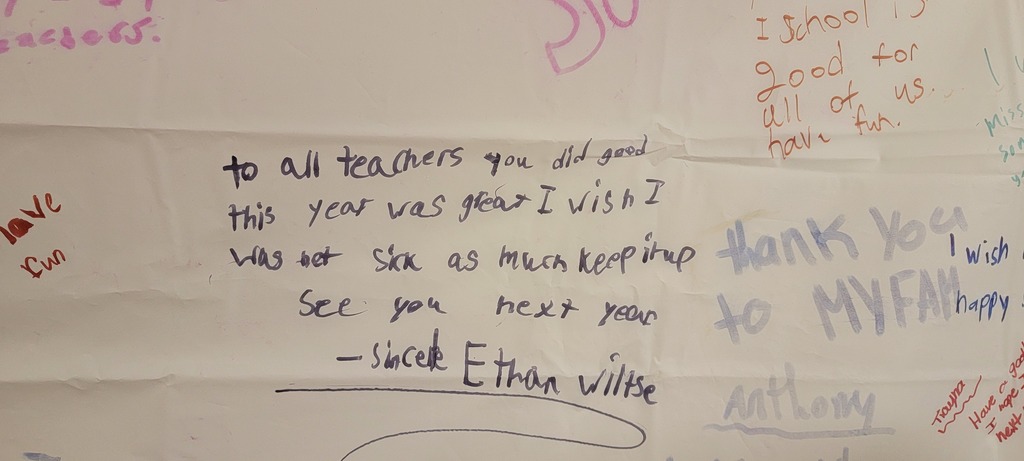 I school is
good for
all of us...
have fun.
to all teachers you did good
this year was great I wish I
was not sick as much keep it up
See you next year
-sincere Ethan wiltse
have
fun
thank you
to MY FAM
Anthony
I wish
happy
miss
Have a good
I hope I
next